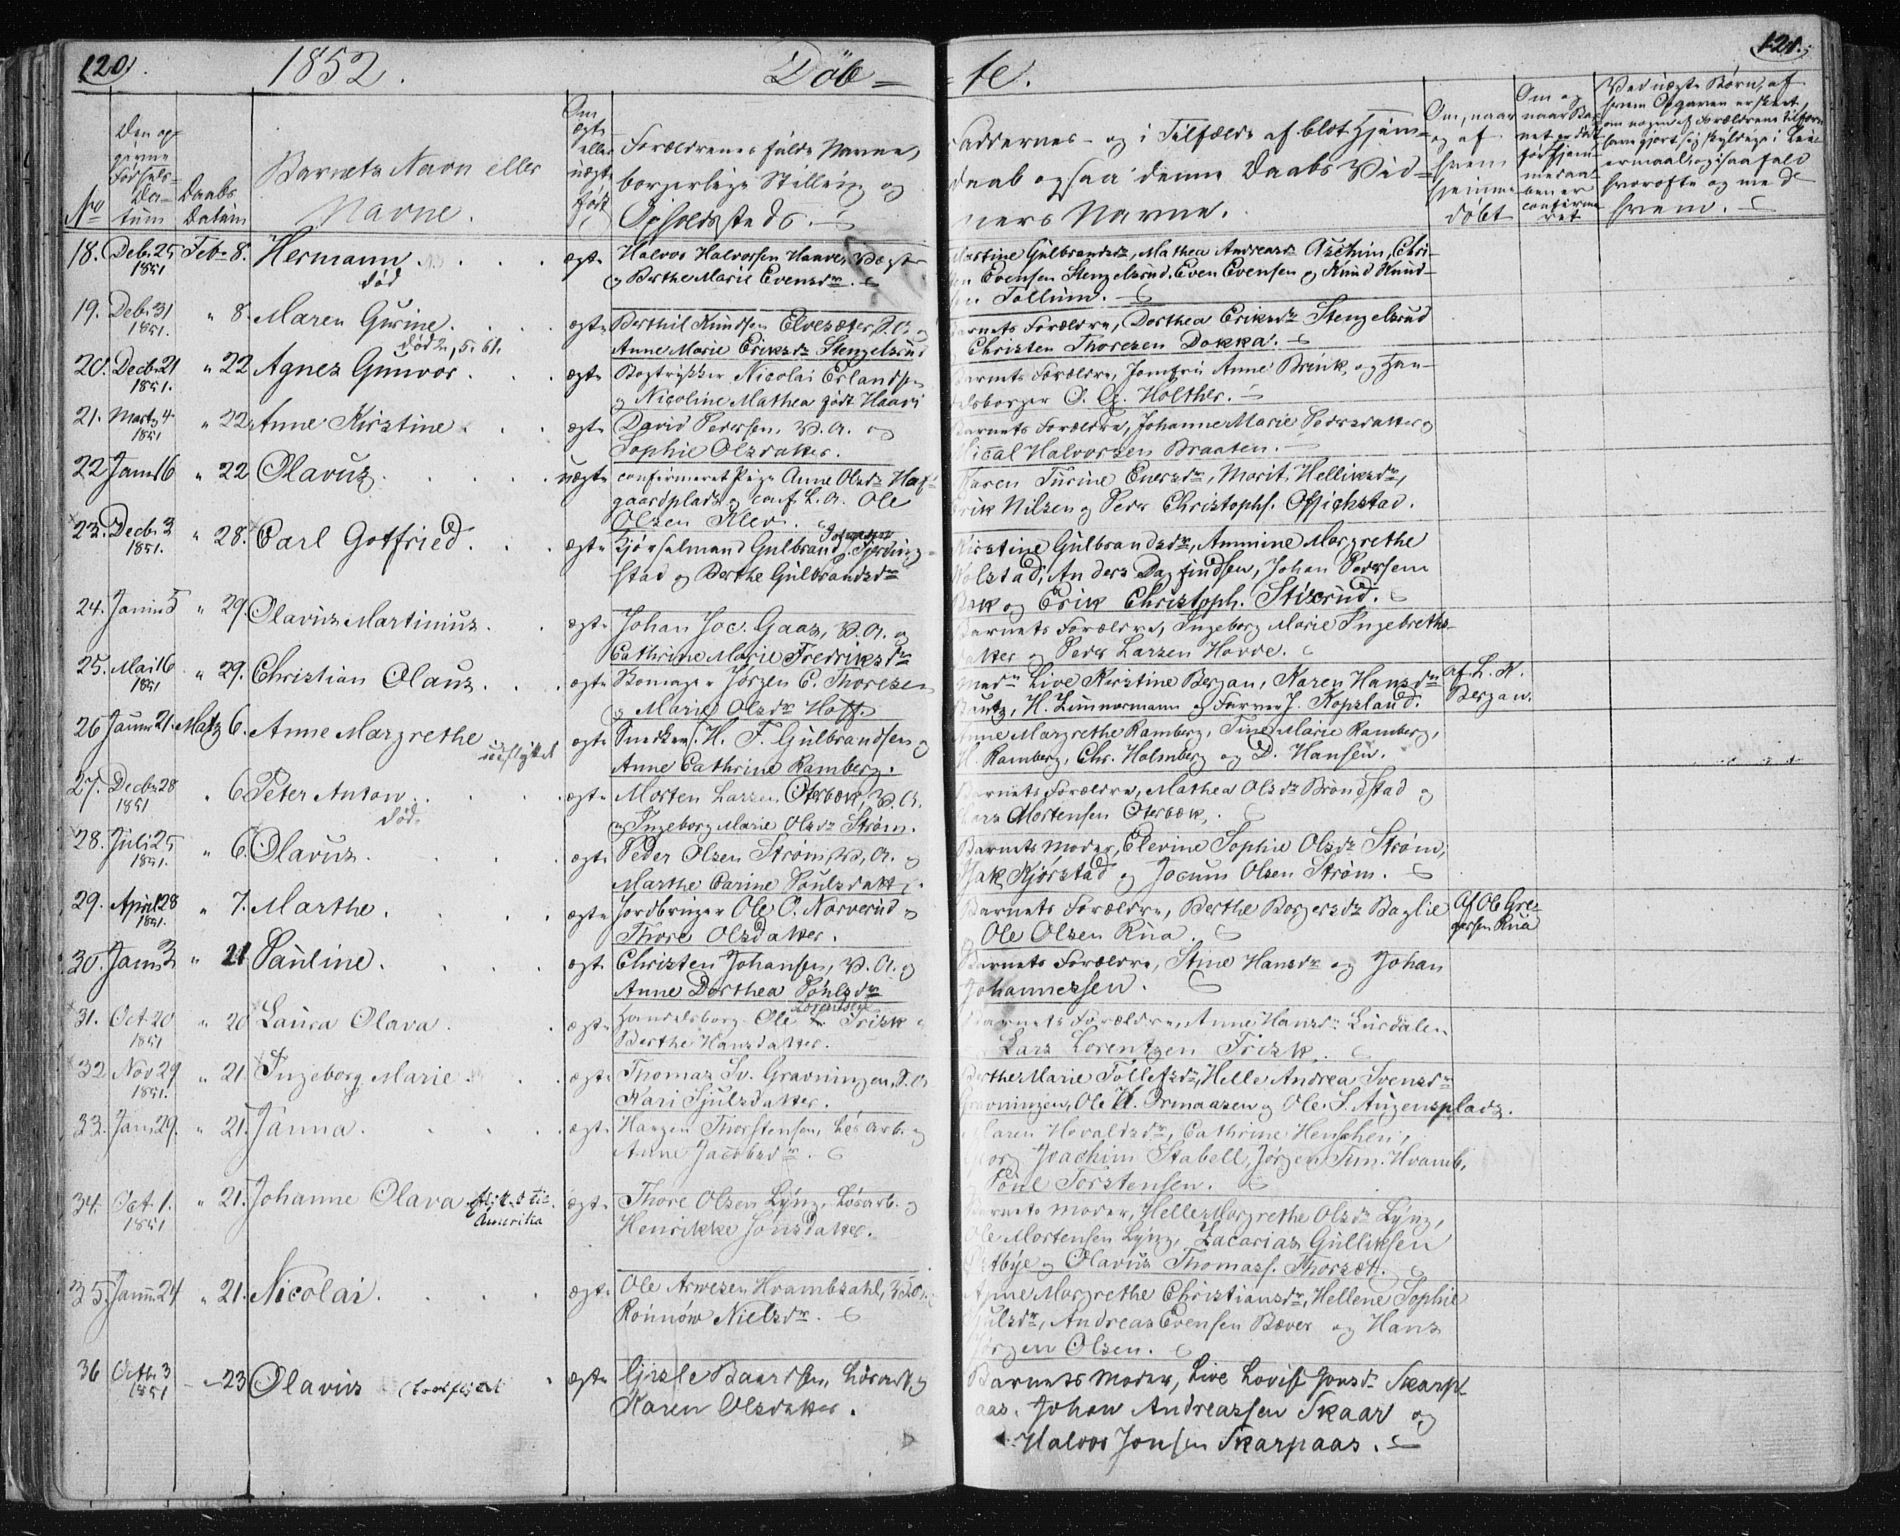 120. 1852. Døb= =te. 121.
No
Den op-
givne
Fødsels-
Da-
tum
Daabs
Datum
Barnets Navn eller
Navne.
Om
ægte
eller
uægte
født
Forældrenes fulde Navne,
borgerlige Stilling og
Opholdssted.
Faddernes- og i Tilfælde af blot Hjem-
daab ogsaa denne Daabs Vid-
ners Navne.
Om, naar
og af
hvem
hjemme
døbt
Om og
naar Bar
net er døbt
før Hjem
medaa-
ben er
confirme
ret
Ved uægte Børn, af
hvem Opgaven er skeet,
om nogen af Forældrene tilforn
have gjort sig skyldige i Leier-
ermaal, og isaafald
hvorofte og med
hvem.
18. Debr 25 1851 Febr 8. Hermann død ægte
Halvor Halvorsen Haave,
og Berthe Marie Evensdr.
Martine Gulbrandsdr, Mathea Andreasdr Askim, Chri-
sten Evensen Stengelsrud, Even Evensen og Knud Knud-
sen Tollum.
19. Debr 31 1851. " 8. Maren Gurine. død 2, 5. 61. ægte
Berthil Knudsen Elvesæter, P. A. og
Anne Marie Eriksdr Stengelsrud
Barnets Forældre, Dorthea Eriksdr Stengelsrud
Christen Thoresen Dokka.
20. Decbr 21 1851. " 22 Agnes Gunvor. ægte
Bogtrykker Nicolai Erlandsen
og Nicoline Mathea født Haari
Barnets Forældre, Jomfru Anne Brink, og Han-
delsborger O. G. Holther.
21. Marts 4. 1851 " 22. Anne Kirstine ægte
David Pedersen, P. A. og
Sophie Olsdatter.
Barnets Forældre, Johanne Marie Pedersdatter og
Mical Halvorsen Braaten.
22 Janr 16 " 22 Olavus. uægte
confirmeret Pige Anne Olsdr Haf-
gaardplads og conf. L. A. Ole
Olsen Klev.
Karen Turine Enersdr, Marit Helliksdr,
Erik Nilsen og Peder Christophs. Offichstad.
23. Decbr 3 1851. " 28. Carl Gotfried. ægte
Kjørselmand Gulbrand Johansen Tjerding-
stad og Berthe Gulbrandsdr
Kirstine Gulbrandsdr, Ammine Margrethe
Kolstad, Anders Dagfindsen, Johan Pedersen
Bak og Erik Christoph. Stixrud.
24. Janur 5 " 29. Olavus Martinius. ægte
Johan Joc. Gaas, P. A. og
Cathrine Marie Fredriksdr
Barnets Forældre, Ingeborg Marie Ingebrets-
datter og Peder Larsen Hovde.
25. Mai 16 1851 " 29. Christian Olaus. ægte
Bomager Jørgen C. Thoresen
og Marie Olsdr Hoff.
Madm Live Kirstine Bergan, Karen Hansdr
Bautz, H. Zimmermann og Farver J. Kopsland.
af L. K.
Bergan.
26 Janur 21. Marts 6. Anne Margrethe udflyttet ægte
Snedkers. H. F. Gulbrandsen og
Anne Cathrine Ramberg.
Anne Margrethe Ramberg, Tine Marie Ramberg,
H. Ramberg, Chr. Holmberg og D. Hansen.
27. Decbr 28 1851 " 6 Peter Anton død. ægte
Morten Larsen Oterbæk, P. A.
og Ingeborg Marie Olsdr Strøm.
Barnets Forældre, Mathea Olsdr Brøndstad og
Lars Mortensen Oterbæk.
28. Juli 25 1851. " 6. Olavus. ægte
Peder Olsen Strøm, P. A. og
Marthe Carine Poulsdatter.
Barnets Moder, Elevine Sophie Olsdr Strøm,
Isak Kjørstad og Jocum Olsen Strøm.
29. April 28 1851. " 7. Marthe. ægte
Jordbruger Ole O. Norverud og
Thore Olsdatter.
Barnets Forældre, Berthe Borgersdr Baglie
og Ole Olsen Rua.
Af Ole Gre-
gersen Rua
30. Janr 3 " 21 Pauline. ægte
Christen Johansen, P. A. og
Anne Dorthea Pouhlsdr
Barnets Forældre, Stine Hansdr og Johan
Johannessen.
31. Oct. 20 1851 " 20 Laura Olava. ægte
Handelsborg. Ole Lorentsen Frisk og
Berthe Hansdatter.
Barnets Forældre, Anne Hansdr Lurdalen
Lars Lorentzen Frisk.
32 Nov 29 1851. " 21 Ingeborg Marie. ægte
Thomas Sv. Gravningen, P. A.
Kari Tjulsdatter.
Berthe Marie Tollefsdr, Helle Andrea Svensdr
Gravningen, Ole H. Ormaasen og Ole S. Augensplads.
33. Janr 29. " 21. Janna. ægte
Hargen Thorstensen, Løsarb. og
Anne Jacobsdr.
Maren Horaldsdr, Cathrine Henschen,
Georg Joachim Stabell, Jørgen Sim. Hvamb,
og Poul Torstensen.
34. Oct. 1. 1851 " 21. Johanne Olava afflyt. d til Amerika ægte
Thore Olsen Lyng, Løsarb. og
Henrikke Jonsdatter.
Barnets Moder, Helle Margrethe Olsdr Lyng,
Ole Mortensen Lyng, Zacarias Gulliksen
Østbye og Olavus Thomass. Thorsæt.
35. Janur 24 " 21. Nicolai. ægte
Ole Arnesen Hvambsahl,
Rønnow Nielsdr.
Anne Margrethe Christiansdr, Hellene Sophie
Poulsdr, Andreas Evensen Bæver og Hans
Jørgen Olsen.
36 Octbr 3 1851 " 23 Olavus ægte
Gisle Baardsen, Løsarb. og
Karen Olsdatter.
Barnets Moder, Live Lovise Jonsdr Skarp-
aas, Johan Andreassen Skaar og
Halvor Jonsen Skarpaas.